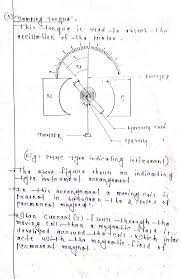 (3) Damping Torque:-
This torque is used to absorb the
oscillation of the pointer.
pointer
N S
spring
(Fig: PMMC type indicating instrument)
The above figure shows an indicating
type instrument arrangement.
In this arrangement a moving coil is
present in between the 2 poles of
permanent magnet.
When current (I) flows through the
moving coil, then a magnetic field is
developed around the coil, which inter
acts with the magnetic field of
permanent magnet.